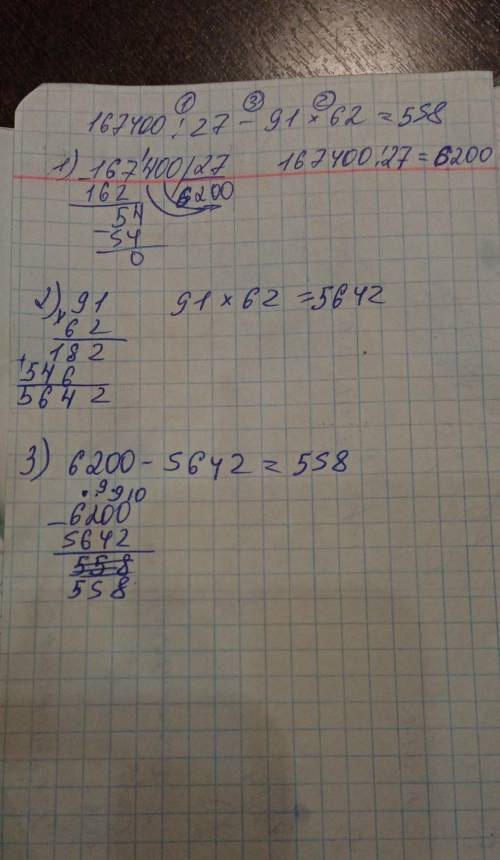 ① ③ ②
167400 : 27 - 91 × 62 = 558
1) 167'400 | 27 167400 : 27 = 6200
162 6200
54
- 54
0
2) × 91 91 × 62 = 5642
62
182
+ 546
5642
3) 6200 - 5642 = 558
. 9 9 10
- 6200
5642
558
558